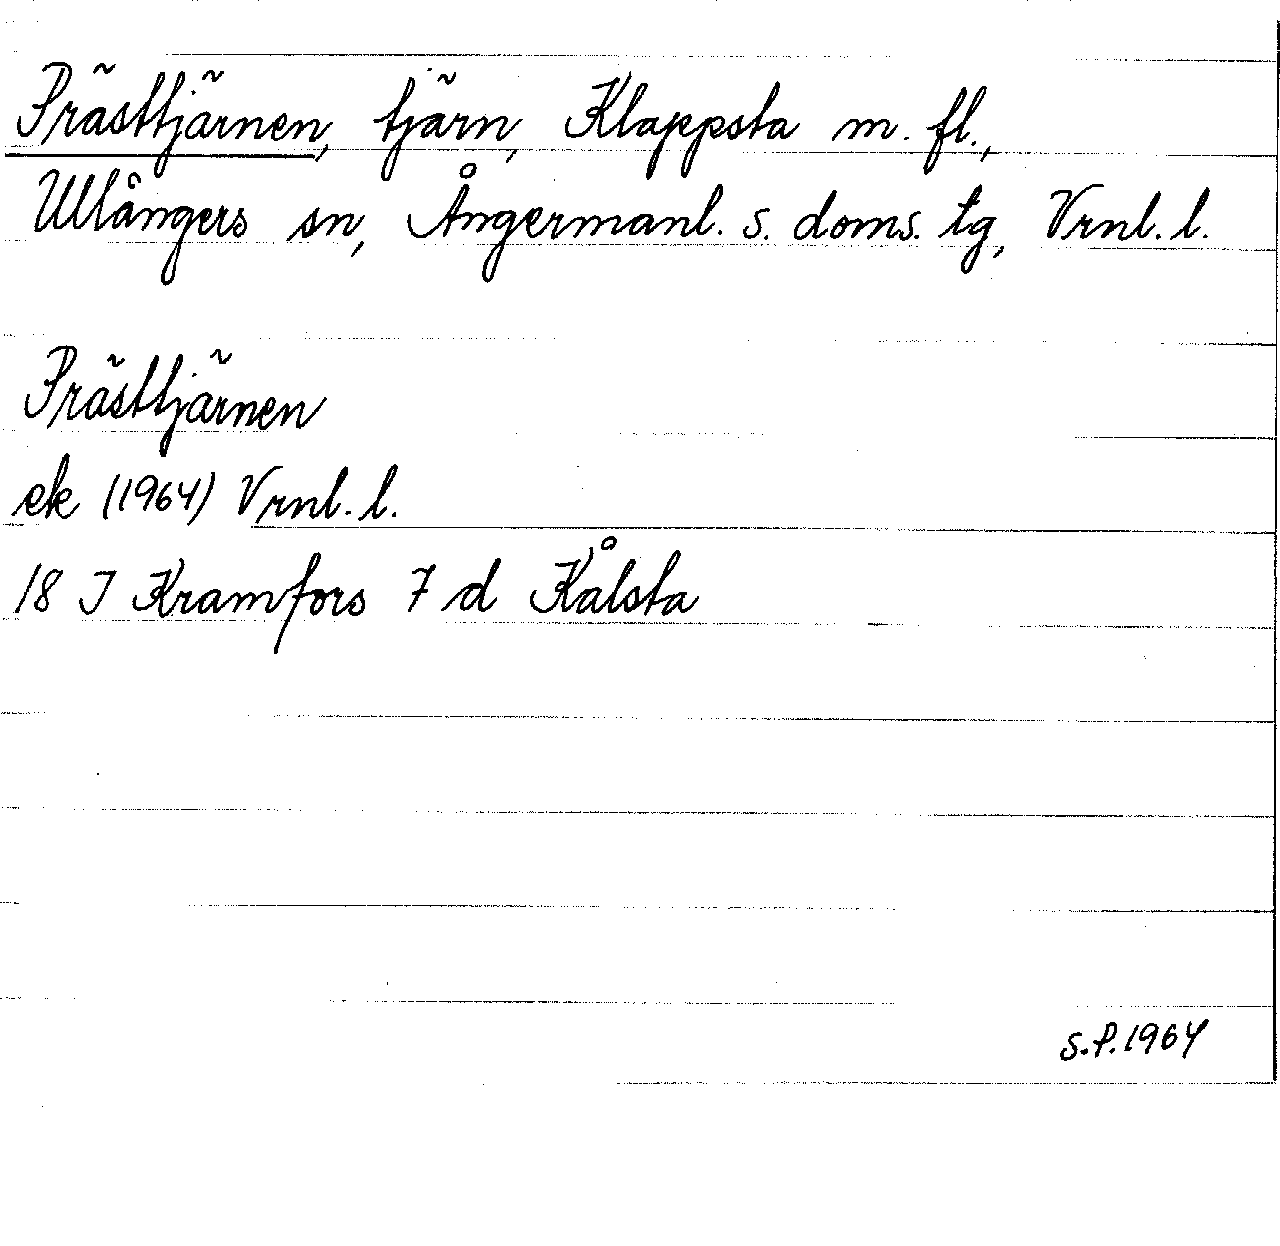 Prästtjärnen, tjärn, Klappsta m. fl.,
Ullångers sn, Ångermanl. s. doms. tg, Vrnl. l.
Prästtjärnen
ek (1964) Vrnl. l.
18 J Kramfors 7 d Kålsta
S.P. 1964